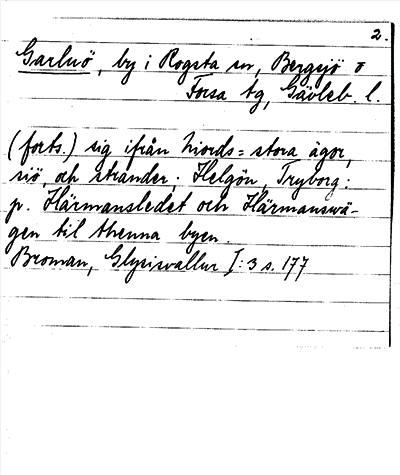 2.
Garlnö, by i Rogsta sn, Bergsjö o
Forsa tg, Gävleb. l.
(forts.) sig ifrån hiords=stora ägor,
siö, och stränder; Helgön, Tryborg:
p. Härmansledet och Härmanswä-
gen til thenna byen.
Broman, Glysisvallur I:3 s. 177